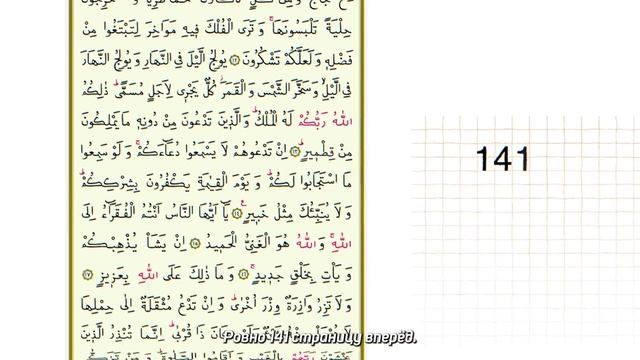 حِلْيَةً تَلْبَسُونَهَا وَتَرَى الْفُلْكَ فِيهِ مَوَاخِرَ لِتَبْتَغُوا مِنْ
فَضْلِهِ وَلَعَلَّكُمْ تَشْكُرُونَ ﴿١٢﴾ يُولِجُ الَّيْلَ فِي النَّهَارِ وَيُولِجُ النَّهَارَ
فِي الَّيْلِ وَسَخَّرَ الشَّمْسَ وَالْقَمَرَ كُلٌّ يَجْرِي لِاَجَلٍ مُسَمًّى ذٰلِكُمُ
اللّٰهُ رَبُّكُمْ لَهُ الْمُلْكُ وَالَّذِينَ تَدْعُونَ مِنْ دُونِهِ مَا يَمْلِكُونَ
مِنْ قِطْمِيرٍ ﴿١٣﴾ اِنْ تَدْعُوهُمْ لَا يَسْمَعُوا دُعَاءَكُمْ وَلَوْ سَمِعُوا
مَا اسْتَجَابُوا لَكُمْ وَيَوْمَ الْقِيٰمَةِ يَكْفُرُونَ بِشِرْكِكُمْ
وَلَا يُنَبِّئُكَ مِثْلُ خَبِيرٍ ﴿١٤﴾ يَا اَيُّهَا النَّاسُ اَنْتُمُ الْفُقَرَاءُ اِلَى
اللّٰهِ وَاللّٰهُ هُوَ الْغَنِيُّ الْحَمِيدُ ﴿١٥﴾ اِنْ يَشَأْ يُذْهِبْكُمْ
وَيَأْتِ بِخَلْقٍ جَدِيدٍ ﴿١٦﴾ وَمَا ذٰلِكَ عَلَى اللّٰهِ بِعَزِيزٍ ﴿١٧﴾
وَلَا تَزِرُ وَازِرَةٌ وِزْرَ اُخْرٰى وَاِنْ تَدْعُ مُثْقَلَةٌ اِلٰى حِمْلِهَا
ذَا قُرْبٰى اِنَّمَا تُنْذِرُ الَّذِينَ
141
Ровно 141 страницу вперёд.